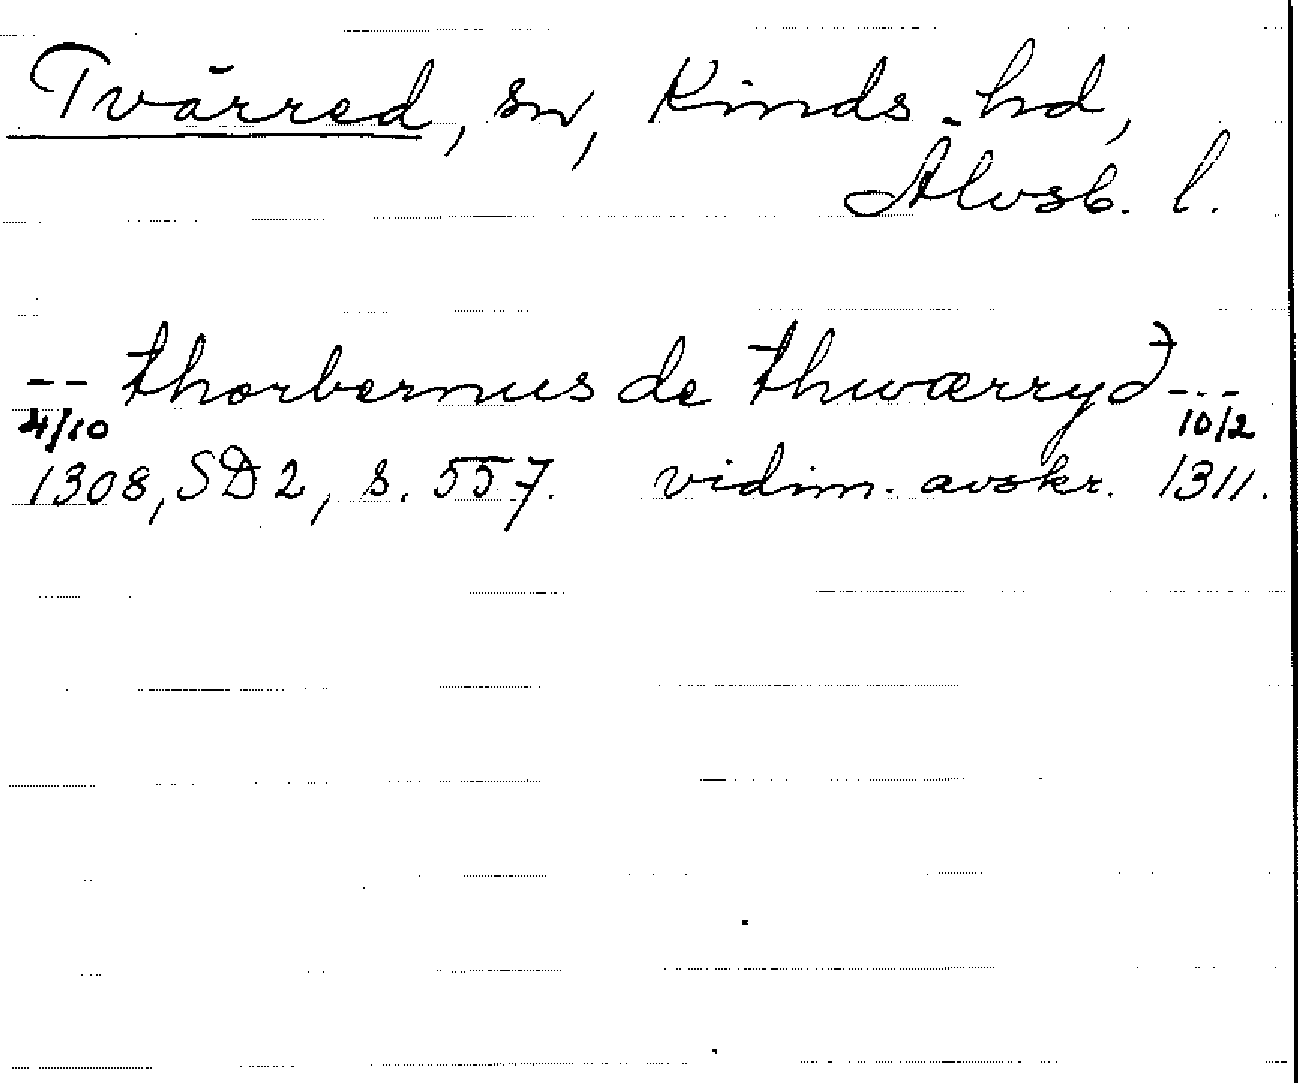 Tvärred, sn, Kinds hd,
Älvsb. l.
-- thorbernus de thwærryð ---
4/10 10/2
1308, SD 2, s. 557. vidim. avskr. 1311.